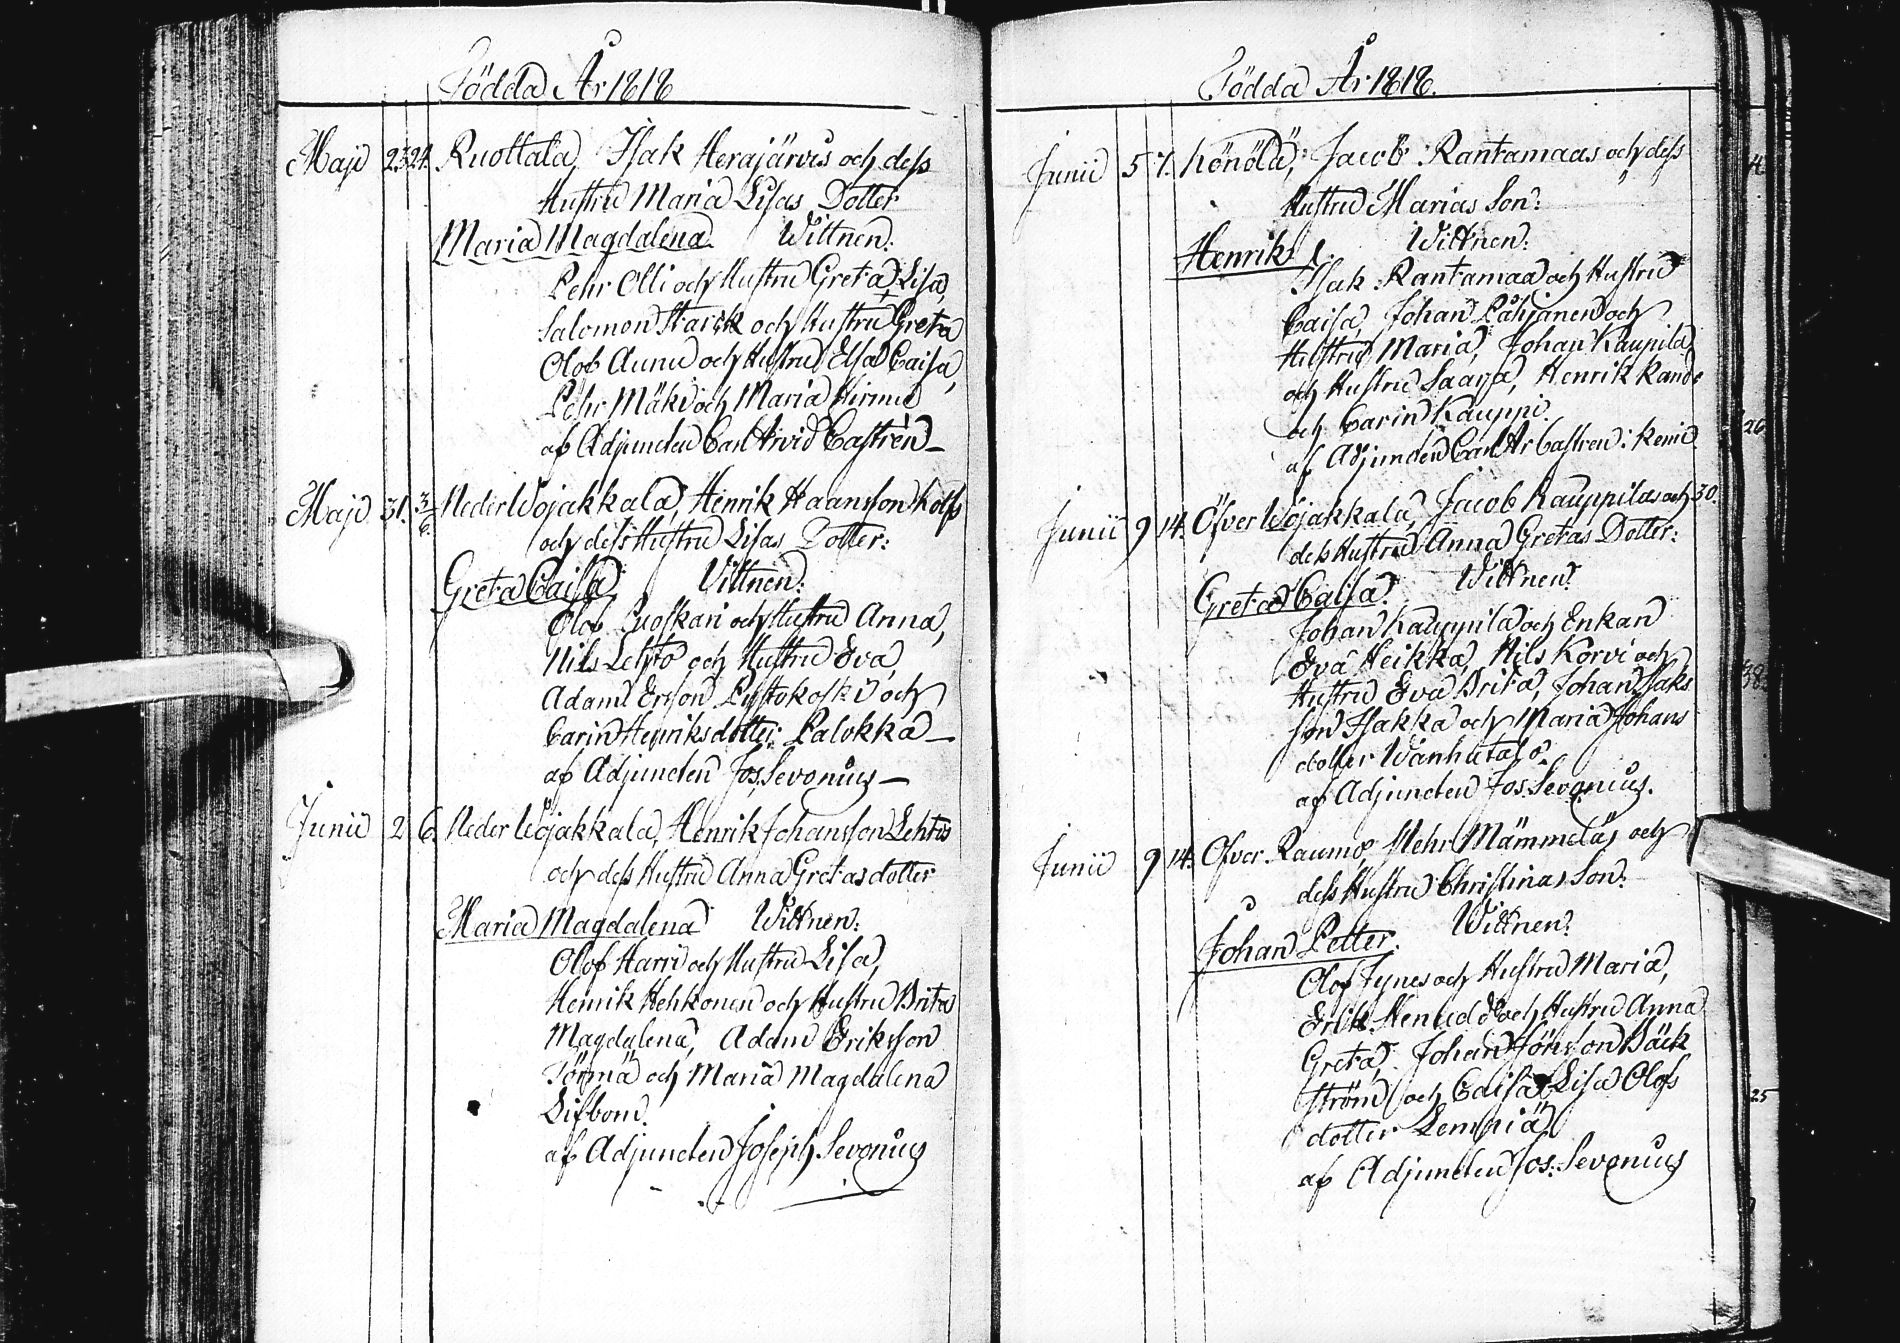 Födda År 1818
Maji 23. 24. Ruottala, Isak Herajärvis och dess
Hustru Maria Lisas Dotter
Maria Magdalena. Wittnen:
Pehr Olli och Hustru Greta Lisa,
Salomon Starck och Hustru Greta
Olob Aunu och Hustru Elsa Caisa,
Pehr Mäki och Maria Hirmu
af Adjuncten Carl Arvid Castrén
Maji 31. 3/6. Neder Wojakkala, Henrik Haansson
och dess Hustru Lisas Dotter:
Greta Caisa Vittnen:
Olof Luoskari och Hustru Anna,
Nils Lehto och Hustru Eva
Adam Ersson Listokoski och
Carin Henriksdotter Palokka
af Adjuncten Jos. Sevonius
Junii 2 6. Neder Wojakkala, Henrik Johansson Lehtos
och dess Hustru Anna Gretas dotter
Maria Magdalena Wittnen:
Olof Harri och Hustru Lisa,
Henrik Hehkonen och Hustru Brita
Magdalena, Adam Eriksson
Törmä och Maria Magdalena
Lifbom.
af Adjuncten Joseph Sevonius
Födda År 1818.
Junii 5 7. Könölä, Jacob Rantamaas och dess
Hustru Marias Son:
Henrik Wittnen:
Isak Rantamaa och Hustru
Caisa, Johan Påhjanen och
Hustru Maria, Johan Kaupila
och Hustru Saara, Henrik
och Carin Kauppi.
af Adjuncten Carl Ar Castren:
Junii 9 14. Öfver Wojakkala, Jacob Kauppilas och
dess Hustru Anna Gretas Dotter:
Greta Caisa Wittnen:
Johan Kauppila och Enkan
Eva Heikka, Nils Korvi och
Hustru Eva Brita, Johan Isaks
son Isakka och Maria Johans
dotter Wanhatalo
af Adjuncten Jos: Sevonius.
Junii 9 14. Öfver Raumo, Pehr Mämmeläs och
dess Hustru Christinas Son:
Johan Petter. Wittnen:
Olof Fynes och Hustru Maria,
Erik och Hustru Anna
Greta, Johan Jönsson Bäck
ström och Caisa Lisa Olofs
dotter Lempiä
af Adjuncten Jos: Sevonius